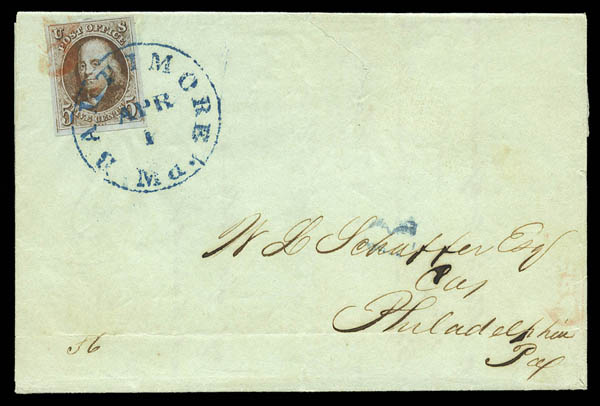 U S
POST OFFICE
5 FIVE CENTS 5
BALTIMORE Md.
APR
1
W L Schaffer Esq
Cas
Philadelphia
Pa